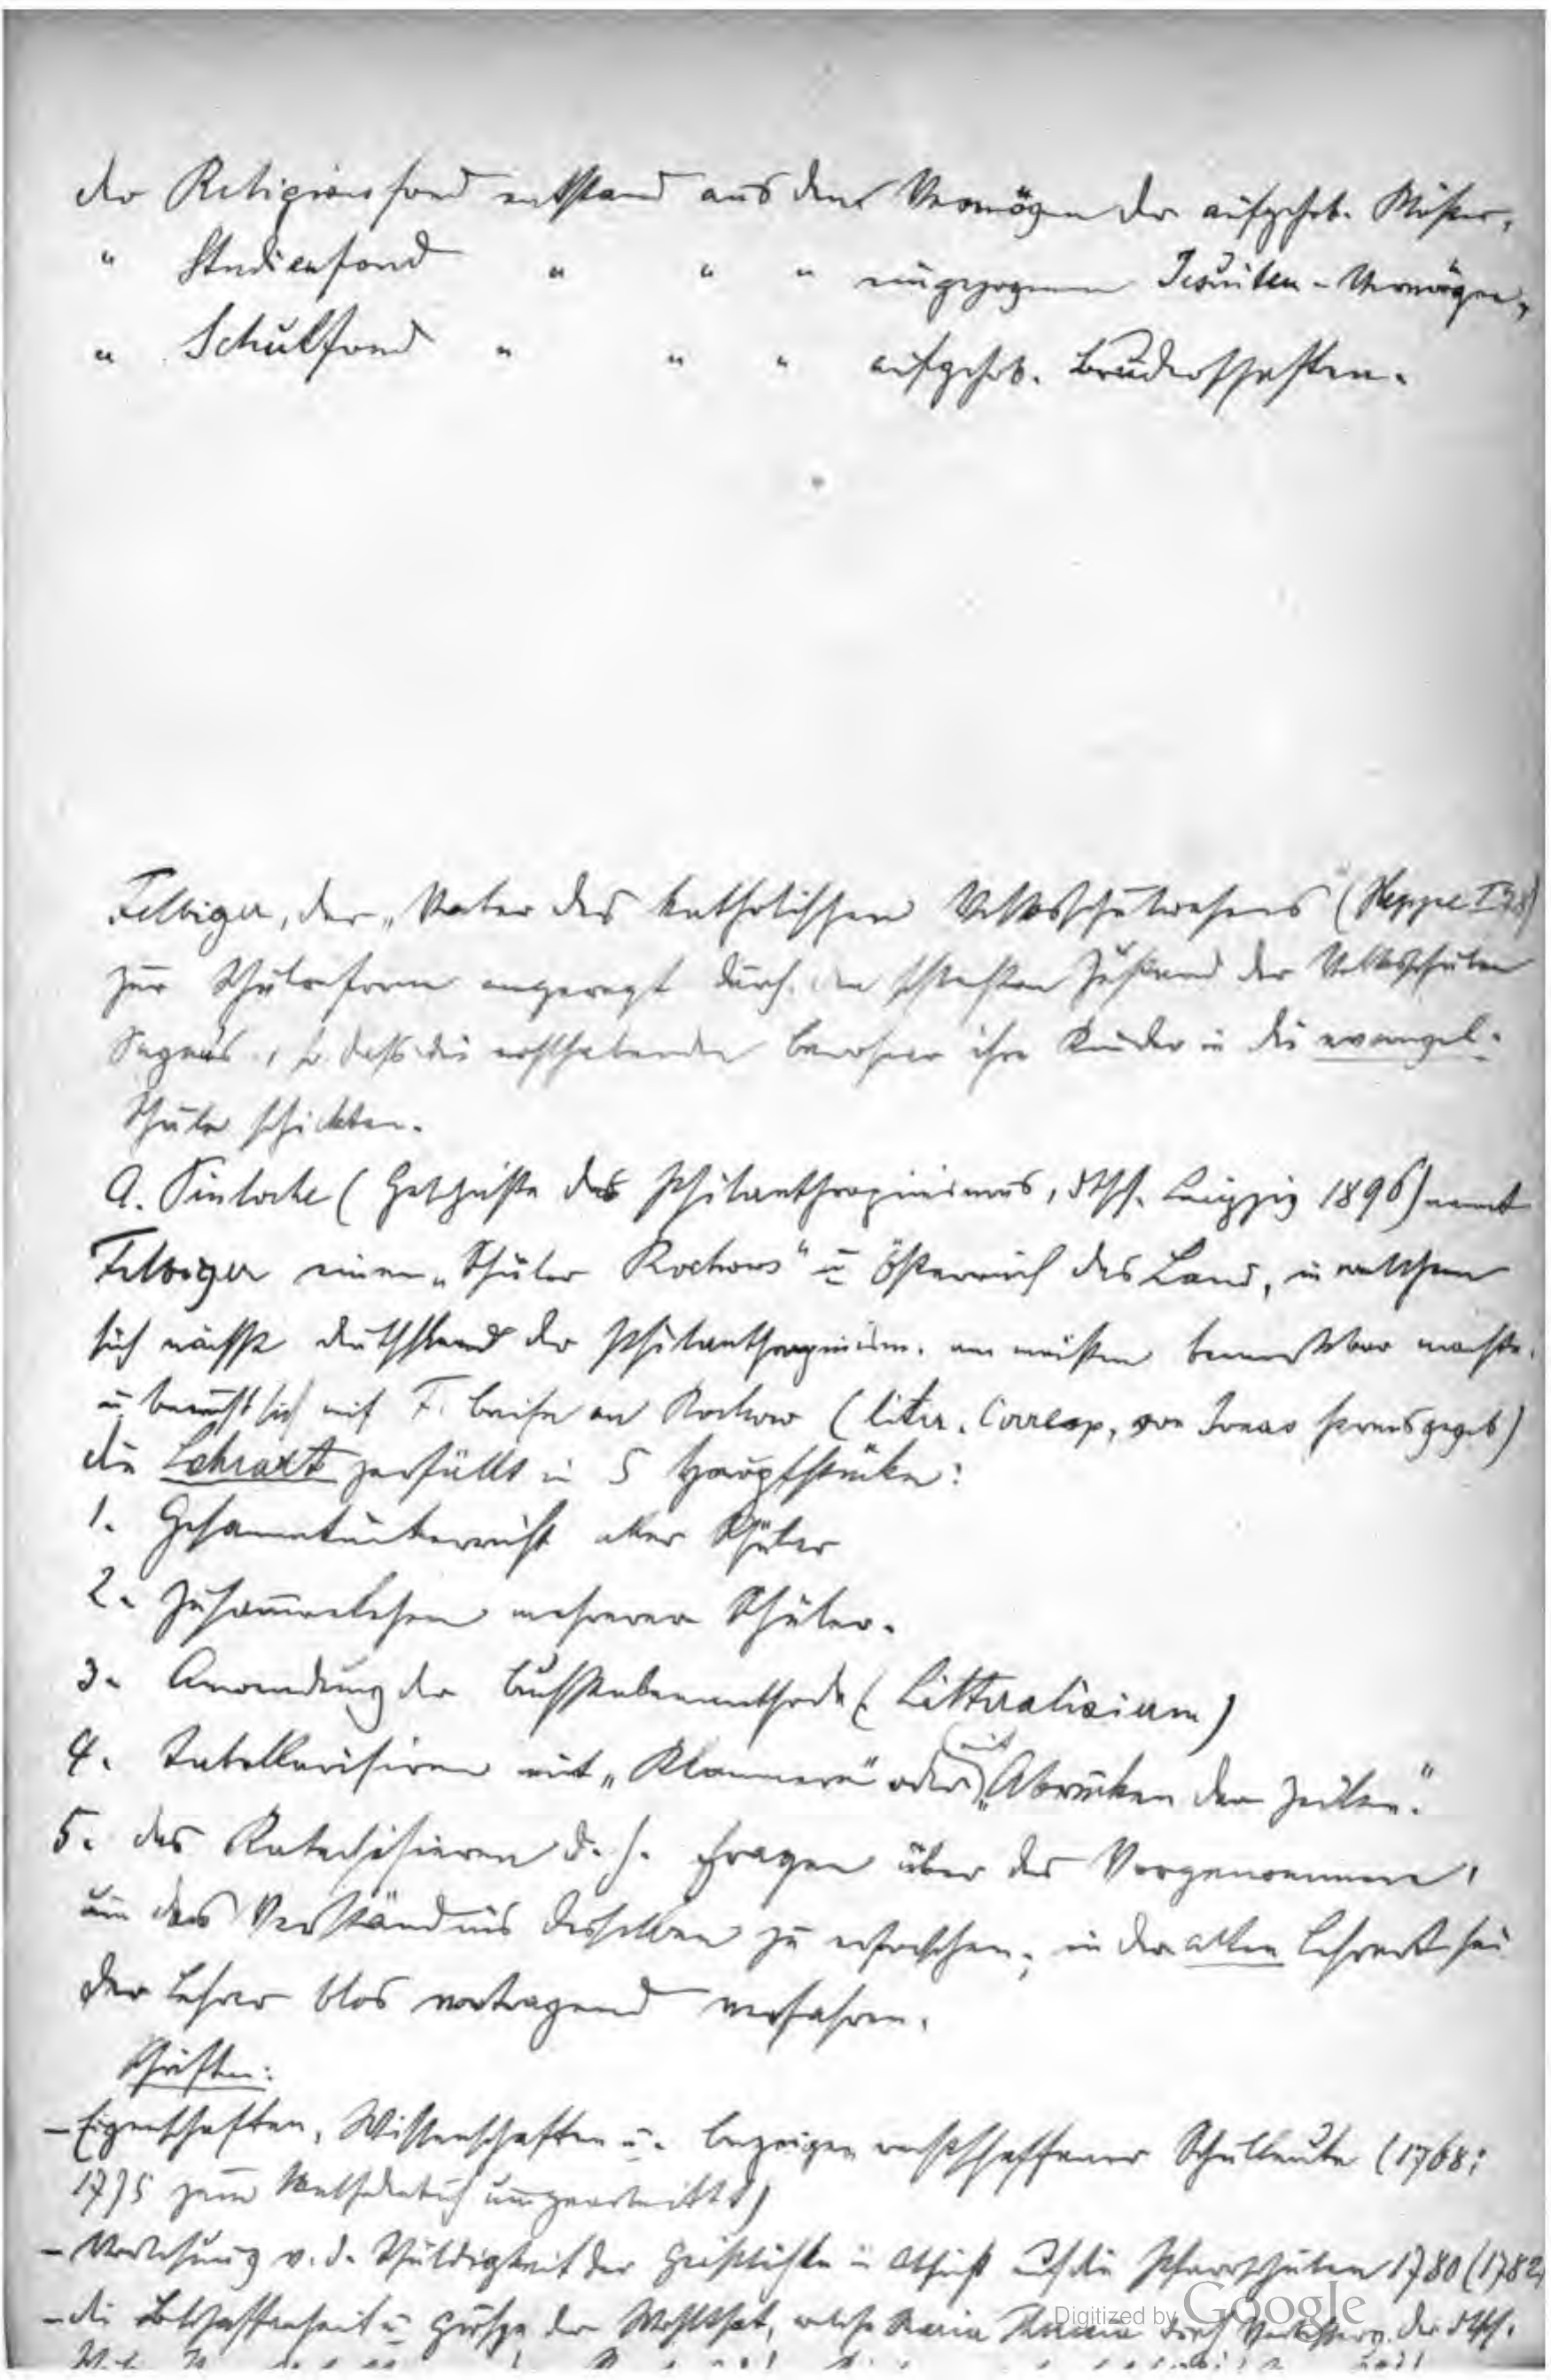 der Religionsfond entstand aus dem Vermögen der aufgehob. Klöster,
" Studienfond " " " eingezogenen Jesuiten-Vermögen,
" Schulfond " " " aufgehob. Bruderschaften.
Felbiger, der „Vater des katholischen Volksschulwesens (Heppe I
zur Schulreform angeregt durch den schlechten Zustand der Volksschulen
Sagans, so daß die wohlhabenden Bewohner ihre Kinder in die evangel.
Schule schickten.
A. Pinloche (Geschichte des Philanthropinismus, dtsch. Leipzig 1896) nennt
Felbiger einen „Schüler Rochows" u. Österreich das Land, in welchem
sich nächst Deutschland der Philanthropinism. am meisten bemerkbar machte.
u. beruft sich auf F. Briefe an Rochow (liter. Corresp. von Jonas herausgegeb)
die Lehrart zerfällt in 5 Hauptstücke:
1. Gesammtunterricht aller Schüler
2. Zusammenlesen mehrerer Schüler.
3. Anwendung der Buchstabenmethode (Litteralisieren)
4. Tabellarisiren mit „Klammern" oder (mit) „Abrücken der Zeilen."
5. das Katechisieren d. h. Fragen über das Vorgenommene,
um das Verständnis desselben zu erforschen; in der alten Lehrart sei
der Lehrer blos vortragend verfahren.
Schriften:
– Eigenschaften, Wissenschaften u. Bezeigen rechtschaffener Schulleute (1768;
1775 zum Methodenbuch umgearbeitet)
– Vorlesung v. d. Schuldigkeit der Geistlichen in Absicht auf die Pfarrschulen 1780 (1782,
– die Beschaffenheit u. Größe der Wohlthat, welche Maria Theresia durch Verbesserg. der dtsch.
Digitized by Google